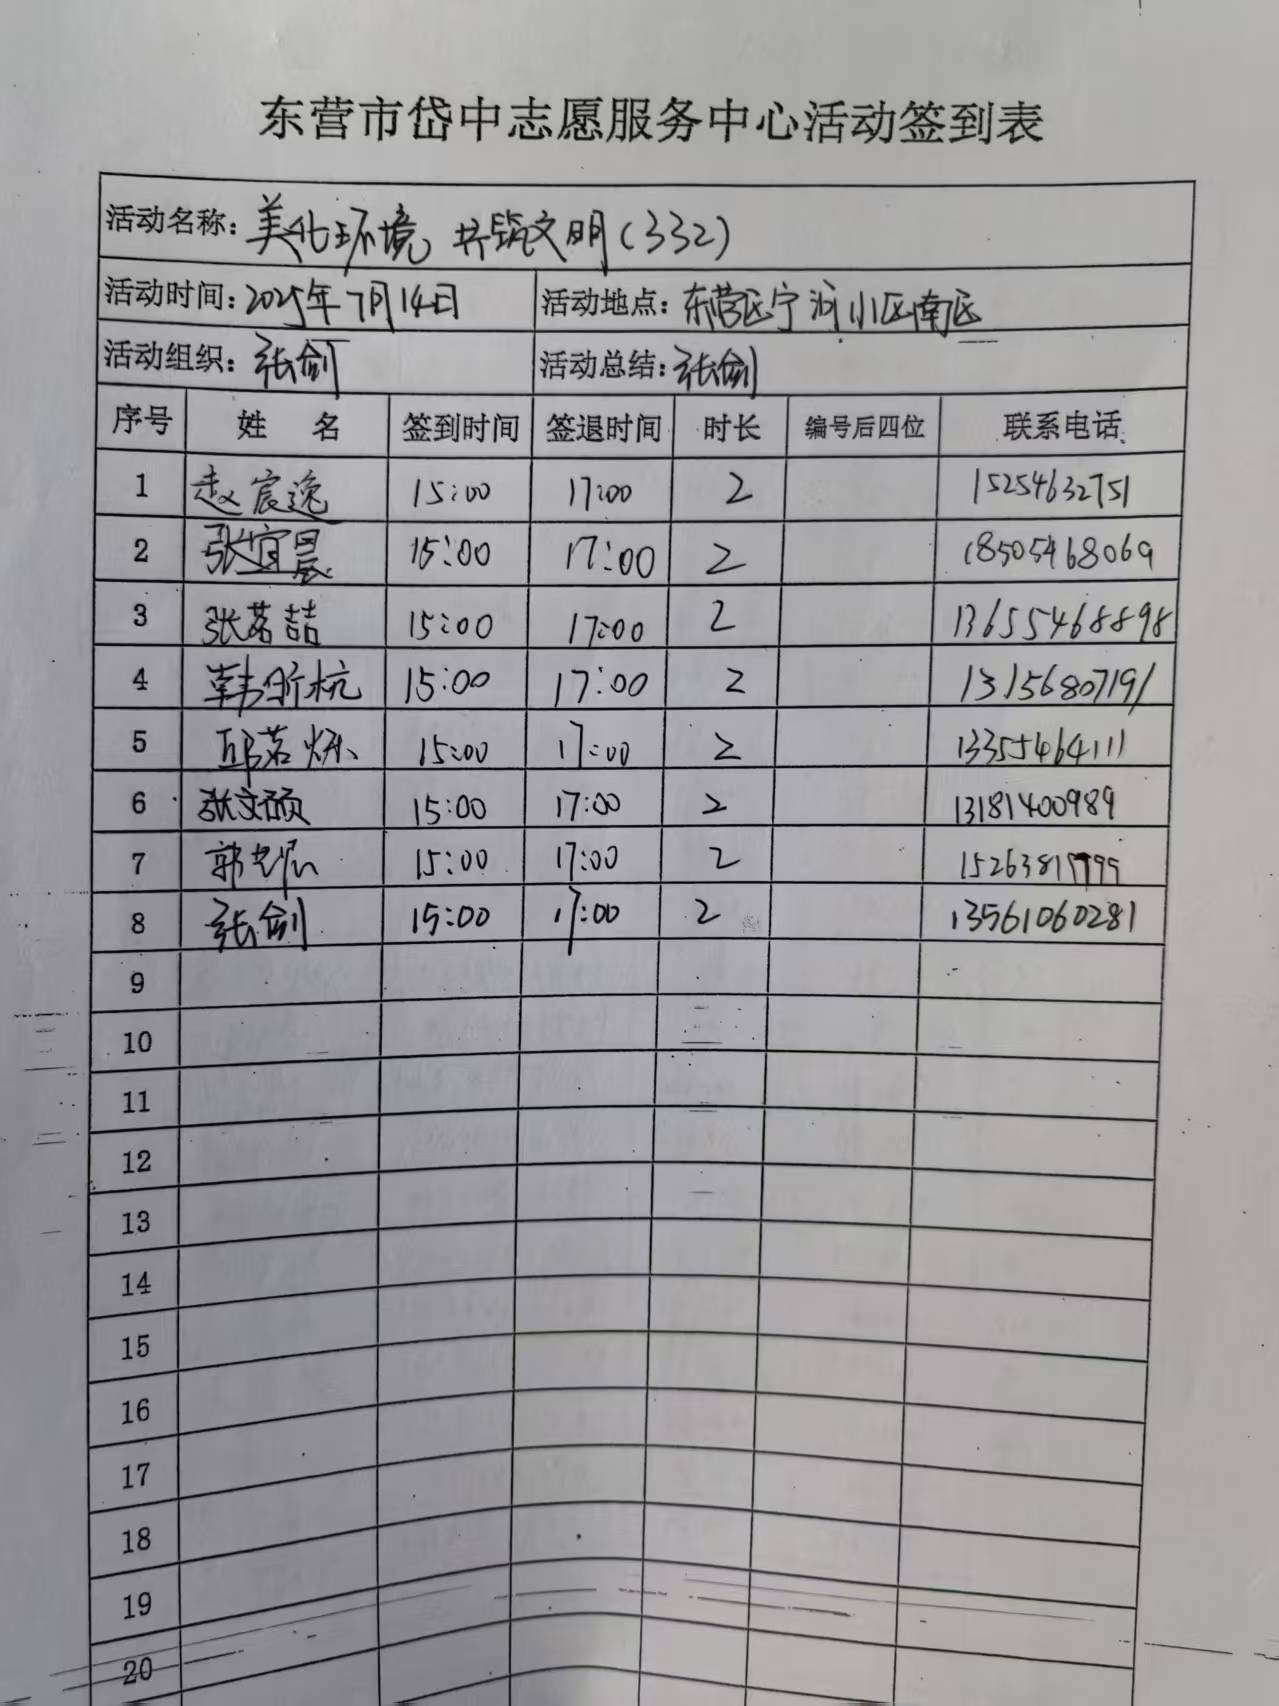 东营市岱中志愿服务中心活动签到表
活动名称：美化环境 共筑文明(332)
活动时间：2025年7月14日 活动地点：东营区宁河小区南区
活动组织：张剑 活动总结：张剑
序号 姓名 签到时间 签退时间 时长 编号后四位 联系电话
1 赵宸逸 15:00 17:00 2 15254632751
2 张宜晨 15:00 17:00 2 18505468069
3 张若喆 15:00 17:00 2 13655468898
4 韩昕杭 15:00 17:00 2 13156807191
5 邱若烁 15:00 17:00 2 13355464111
6 张文硕 15:00 17:00 2 13181400989
7 郭 15:00 17:00 2
8 张剑 15:00 17:00 2 13561060281
9
10
11
12
13
14
15
16
17
18
19
20